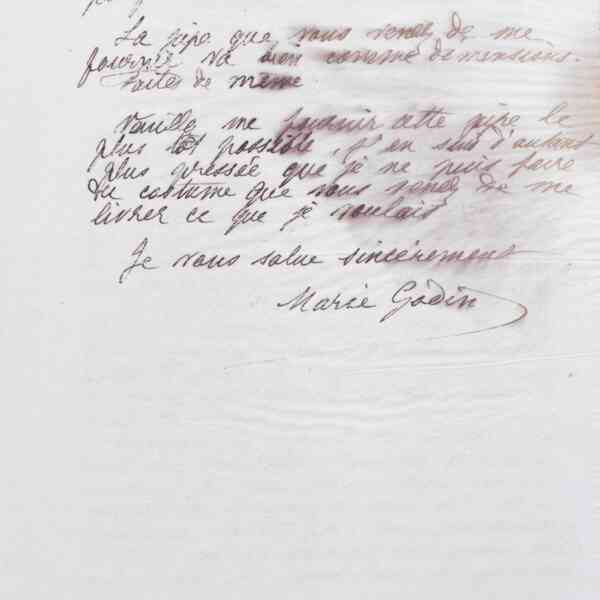 La jupe que vous venez de me
fournir va bien comme dimensions.
Faites de même
Veuillez me fournir cette jupe le
plus tôt possible, j'en suis d'autant
plus pressée que je ne puis faire
du costume que vous venez de me
livrer ce que je voulais
Je vous salue sincèrement
Marie Godin